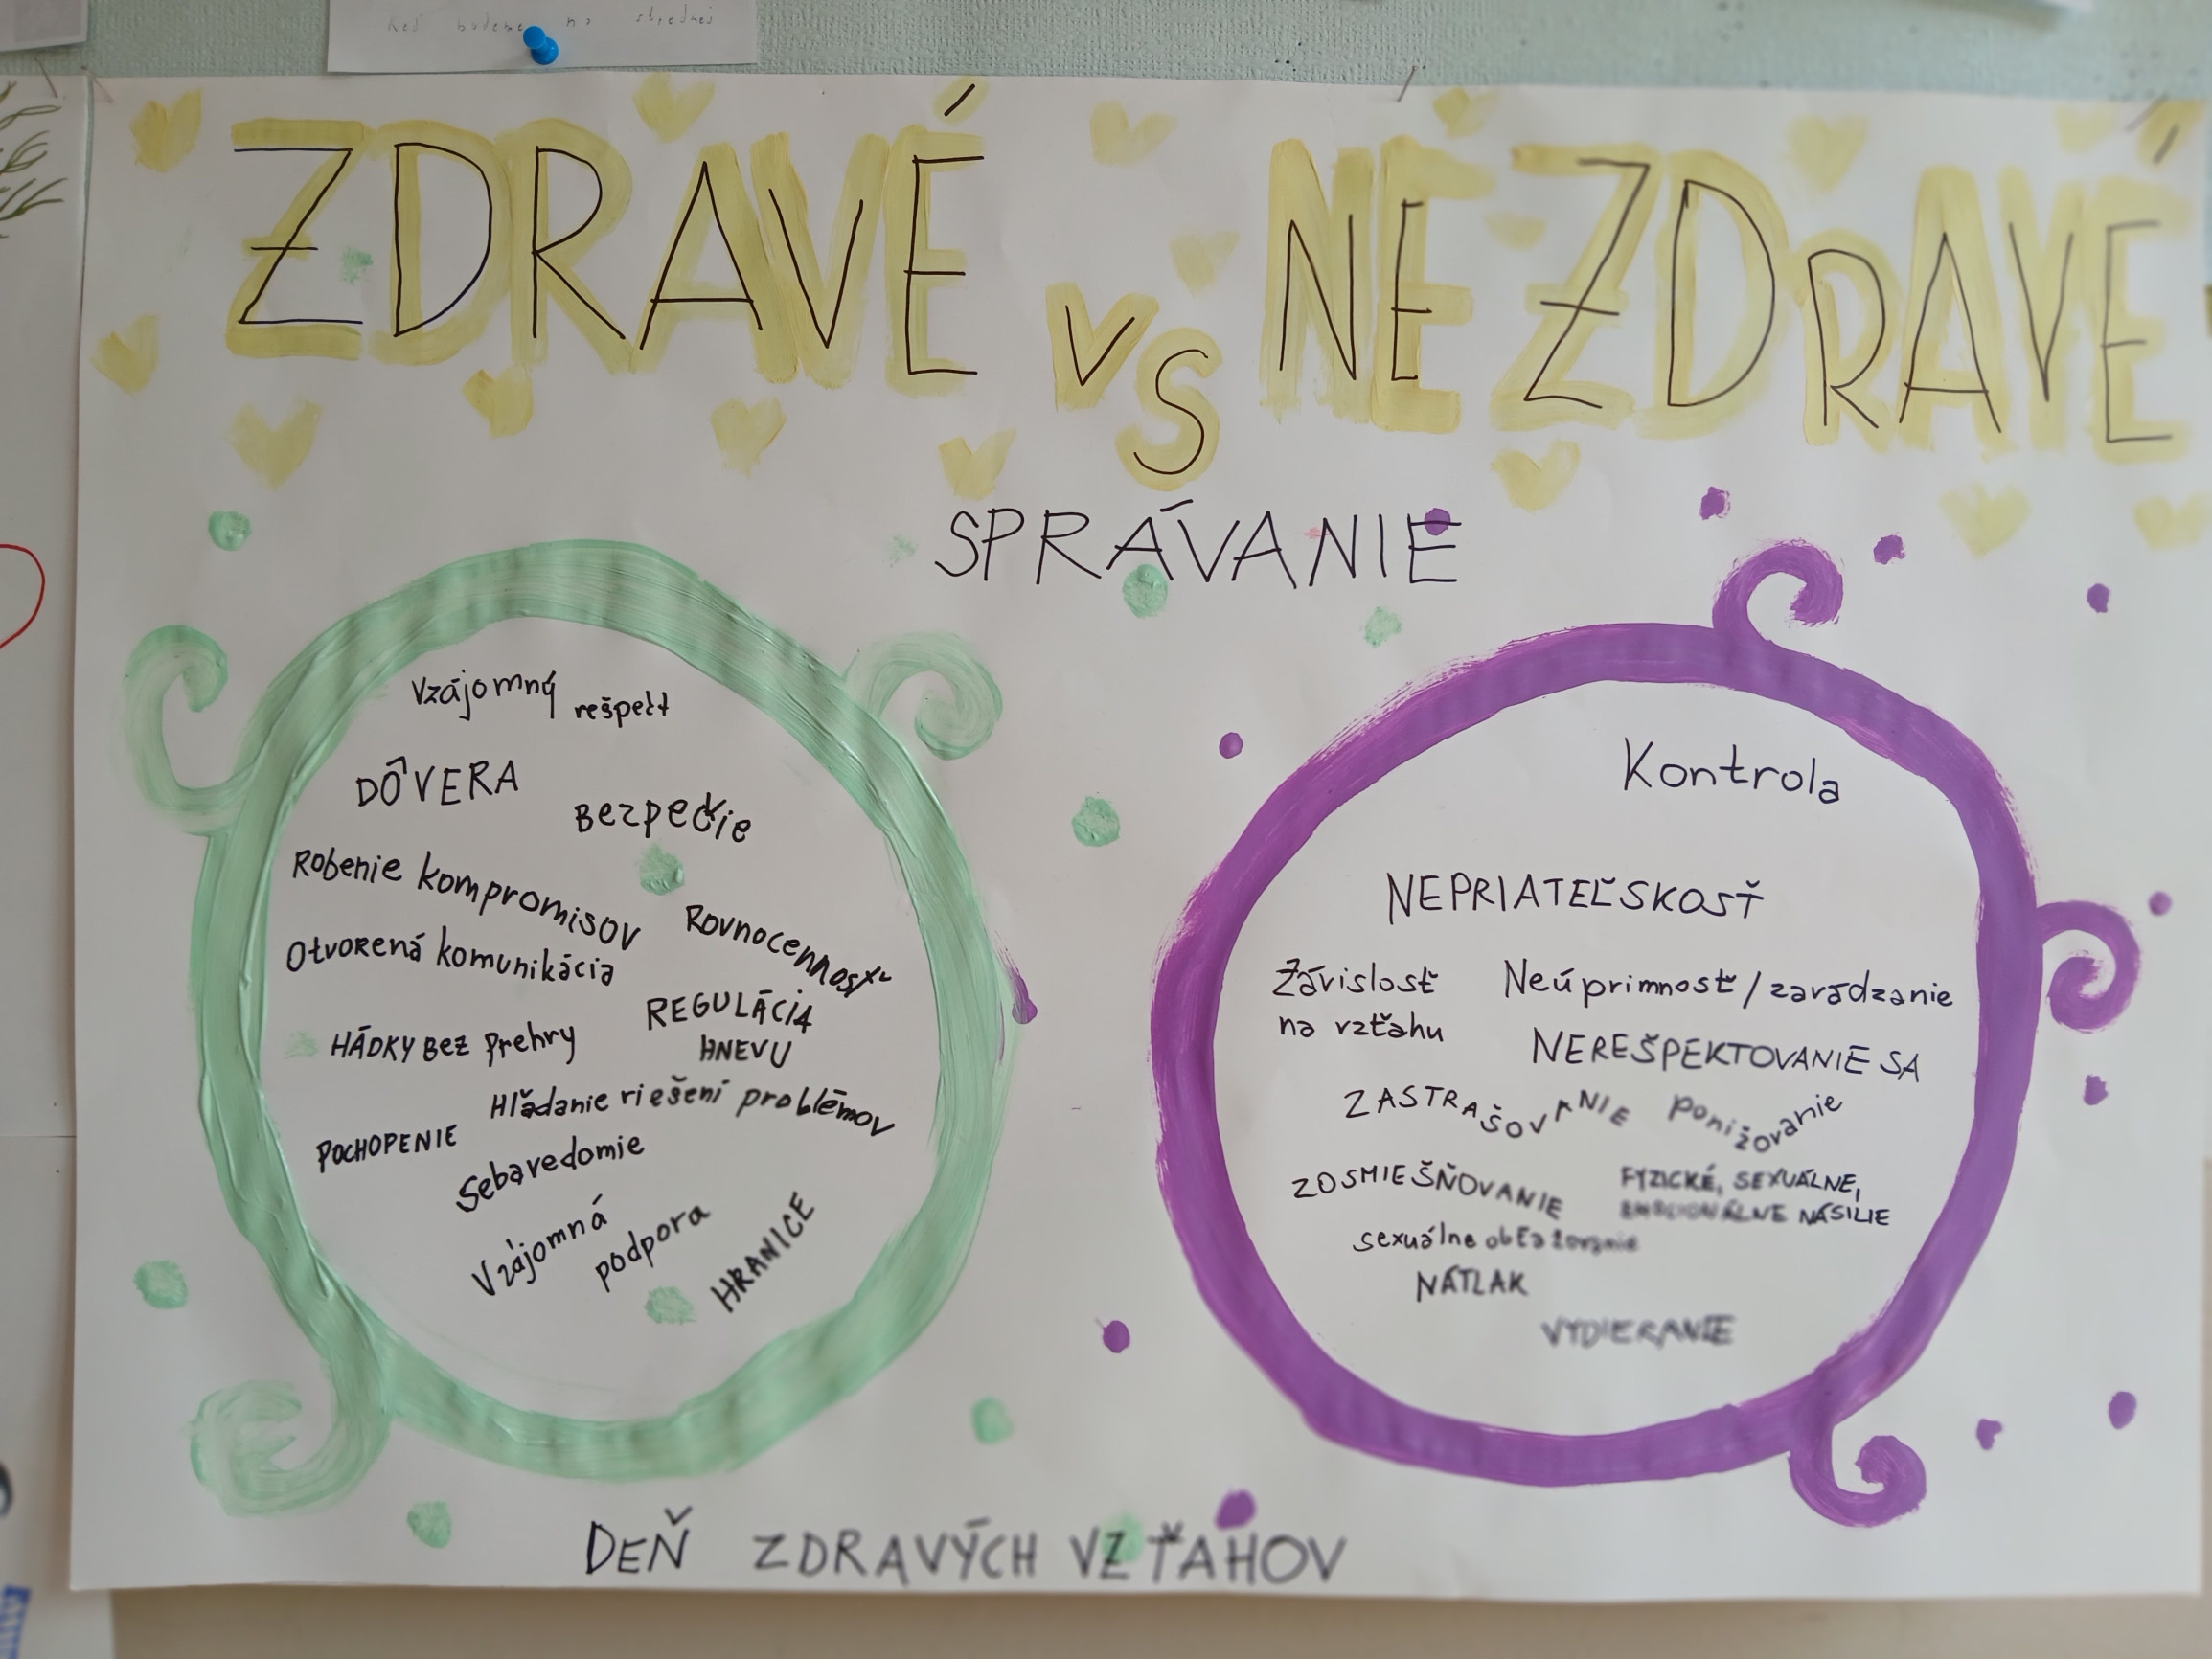 Keď budeme na strednej
ZDRAVÉ vs NEZDRAVÉ
SPRÁVANIE
Vzájomný rešpekt
DÔVERA
Bezpečie
Robenie kompromisov
Rovnocennosť
Otvorená komunikácia
REGULÁCIA
HNEVU
HÁDKY BEZ prehry
Hľadanie riešení problémov
POCHOPENIE
Sebavedomie
Vzájomná
podpora
HRANICE
Kontrola
NEPRIATEĽSKOSŤ
Závislosť
na vzťahu
Neúprimnosť/zavádzanie
NEREŠPEKTOVANIE SA
ZASTRAŠOVANIE
ponižovanie
ZOSMIEŠŇOVANIE
FYZICKÉ, SEXUÁLNE,
EMOCIONÁLNE NÁSILIE
sexuálne obťažovanie
NÁTLAK
VYDIERANIE
DEŇ ZDRAVÝCH VZŤAHOV